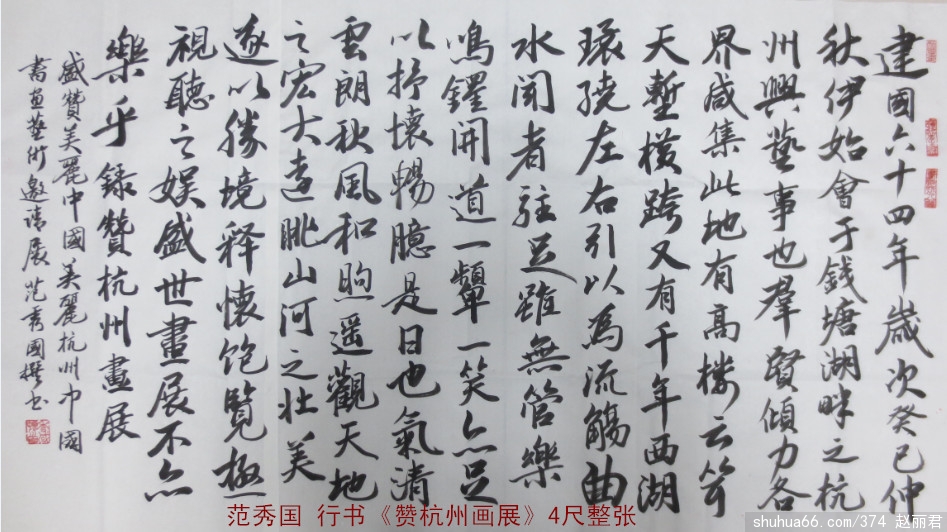 建國六十四年歲次癸已仲
秋伊始會于錢塘湖畔之杭
州興藝事也羣賢傾力各
界咸集此地有高楼云
天塹横跨又有千年西湖
環繞左右引以爲流觴曲
水聞者駐足雖無管樂
鳴鑼開道一顰一笑亦足
以抒懷暢臆是日也氣清
雲朗秋風和煦遥觀天地
之宏大遠眺山河之壮美
遂以勝境释懷饱覽極
視聽之娱盛世畫展不亦
樂乎 錄贊杭州畫展
盛贊美麗中國美麗杭州中國
書畫藝術邀請展 范秀國撰书
范秀国 行书《赞杭州画展》4尺整张
shuhua66.com/374 赵丽君